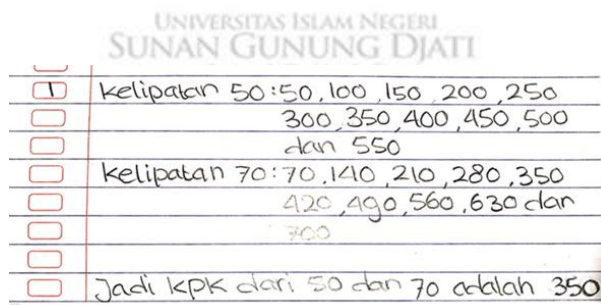 UNIVERSITAS ISLAM NEGERI
SUNAN GUNUNG DJATI
1 Kelipatan 50:50,100,150,200,250
300,350,400,450,500
dan 550
Kelipatan 70:70,140,210,280,350
420,490,560,630 dan
700
Jadi KPK dari 50 dan 70 adalah 350